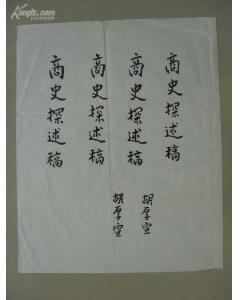 商史探述稿
商史探述稿
商史探述稿
商史探述稿
胡厚宣
胡厚宣
Kongfz.com